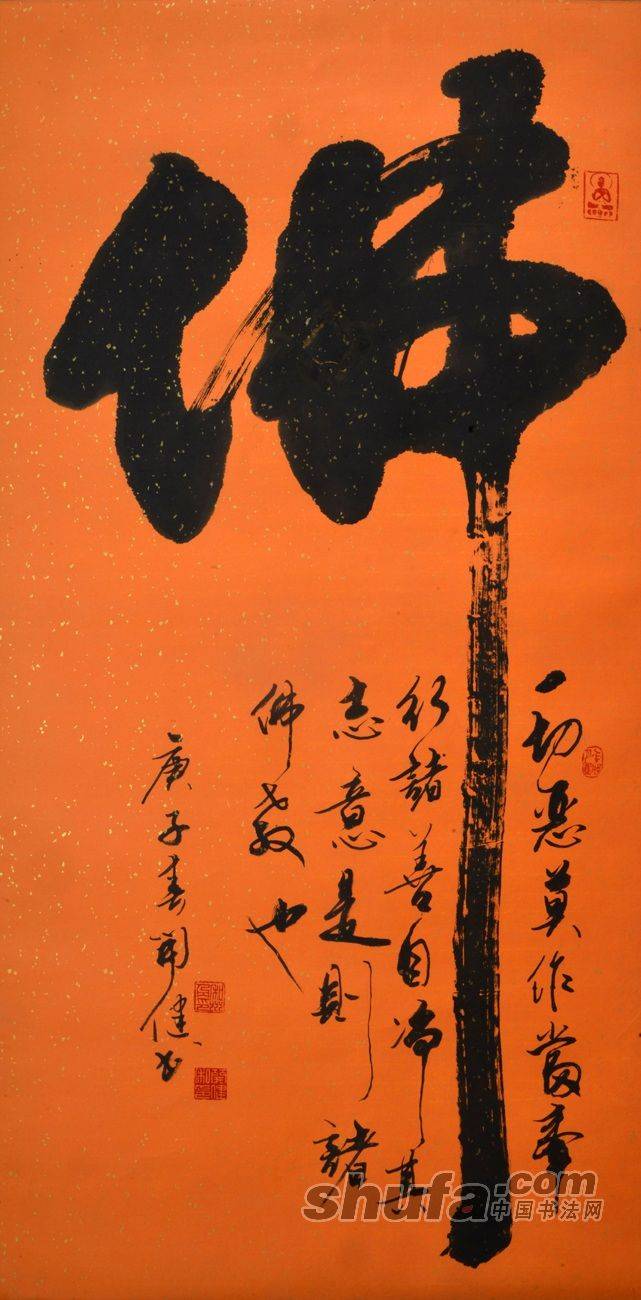 佛
一切恶莫作當奉
行諸善自淨其
志意是則諸
佛教也
庚子春健书
shufa.com
中国书法网